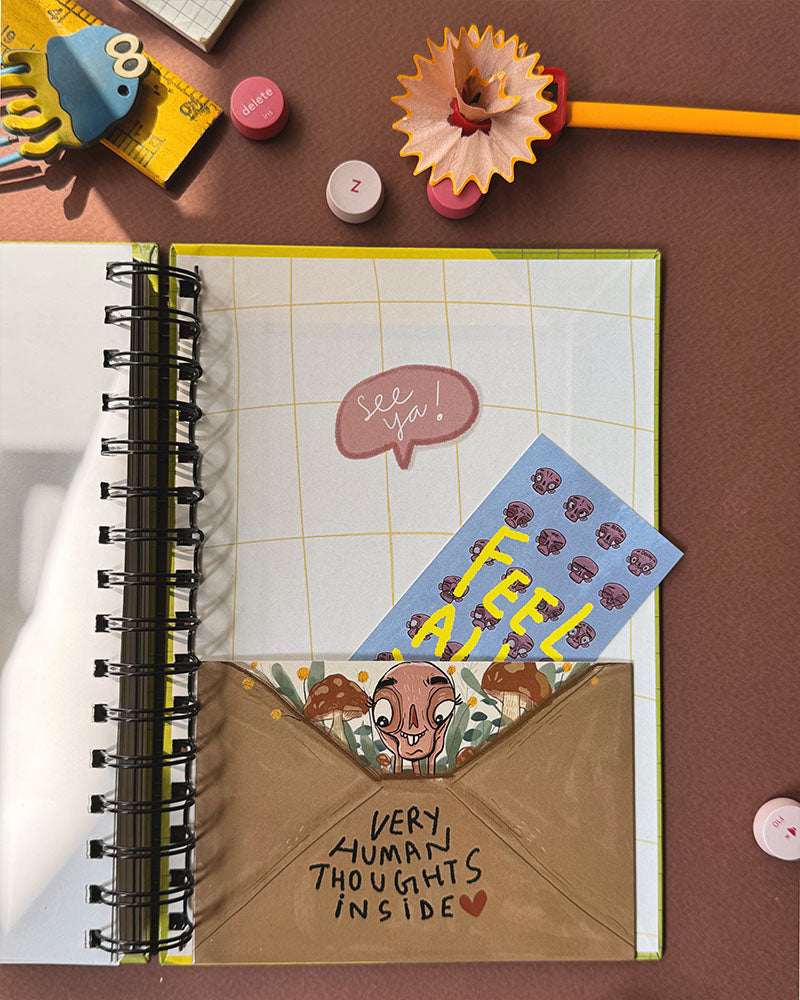 delete
ins
Z
see
ya!
FEEL
VERY
HUMAN
THOUGHTS
INSIDE
F10